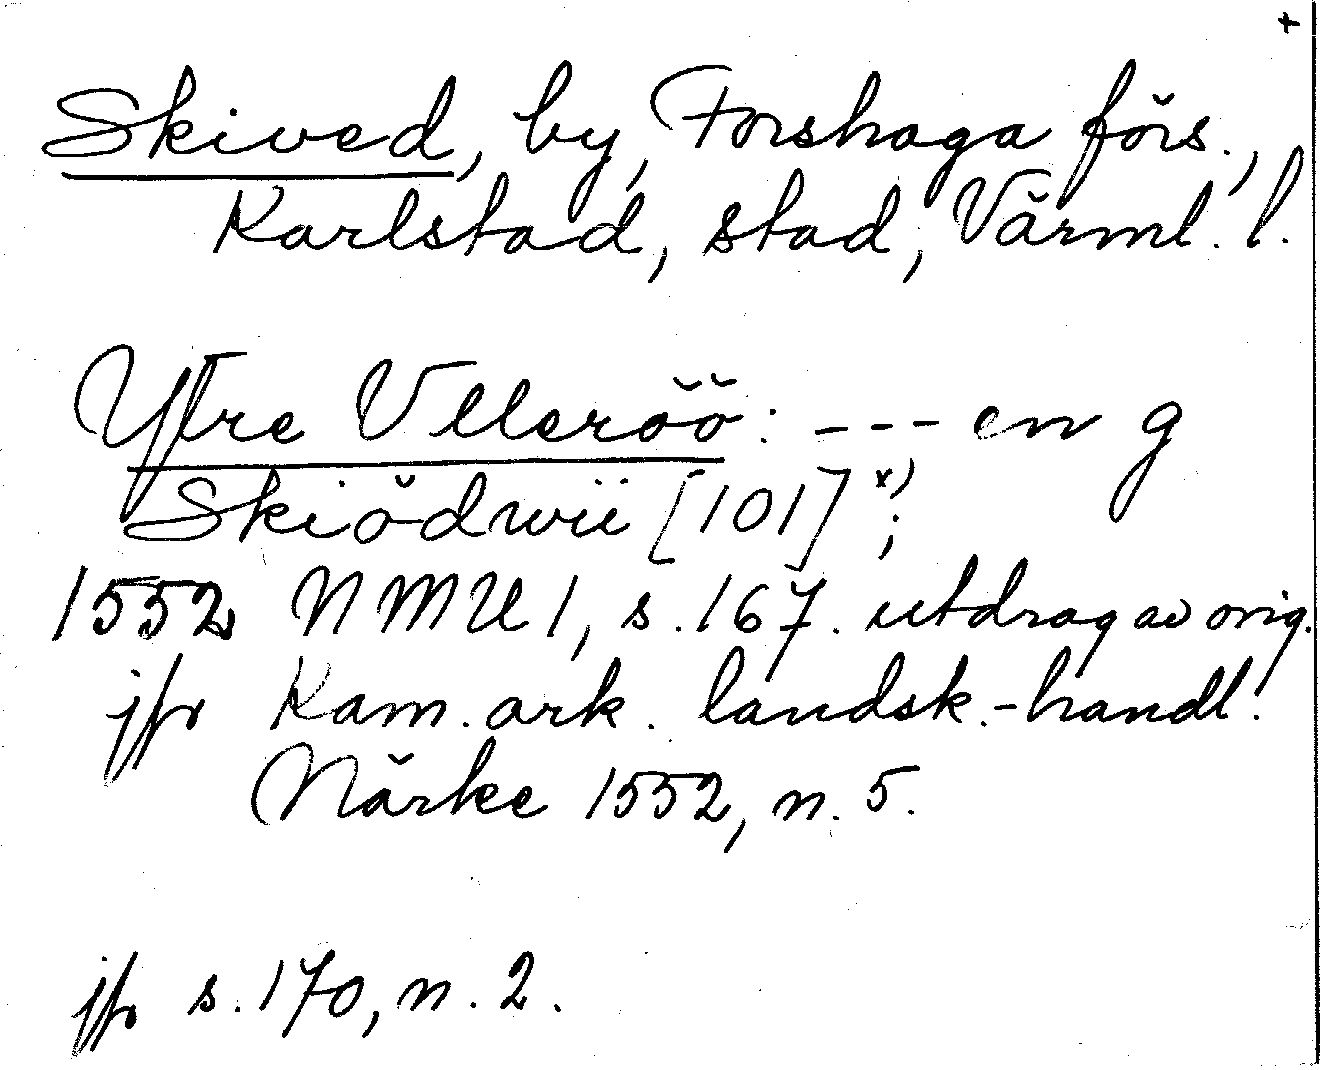 +
Skived, by, Forshaga förs.,
Karlstad, stad, Värml. l.
Yttre Ulleröö: --- en g
Skiödwii [101] x);
1552 NMU 1, s. 167. utdrag av orig.
jfr Kam. ark. landsk.-handl.
Närke 1552, n. 5.
jfr s. 170, n. 2.